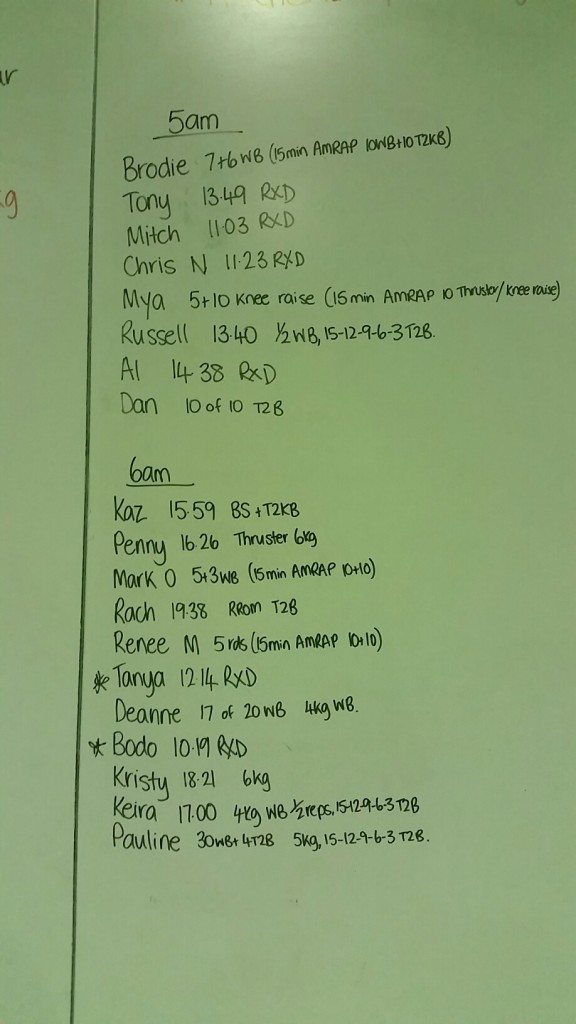 ar
kg
5am
Brodie 7+6WB (15min AMRAP 10WB+10T2KB)
Tony 13.49 RXD
Mitch 11.03 RXD
Chris N 11.23 RXD
Mya 5+10 Knee raise (15min AMRAP 10 Thruster/Knee raise)
Russell 13.40 1/2 WB, 15-12-9-6-3 T2B.
Al 14 38 RXD
Dan 10 of 10 T2B
6am
Kaz 15.59 BS+T2KB
Penny 16.26 Thruster 6kg
Mark O 5+3WB (15min AMRAP 10+10)
Rach 19.38 RROM T2B
Renee M 5rds (15min AMRAP 10+10)
* Tanya 12.14 RXD
Deanne 17 of 20 WB 4kg WB.
* Bodo 10.19 RXD
Kristy 18.21 6kg
Keira 17.00 4kg WB 1/2 reps, 15-12-9-6-3 T2B
Pauline 30WB+4T2B 5kg, 15-12-9-6-3 T2B.